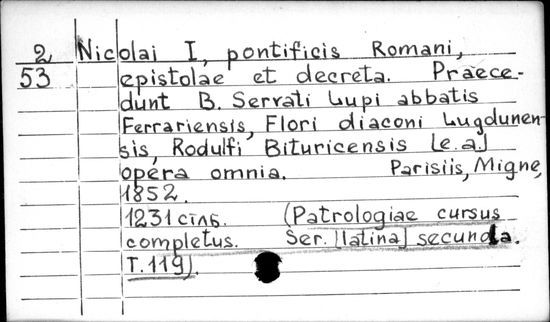 2 Nicolai I, pontificis Romani,
53 epistolae et decreta. Praece-
dunt B. Servati Lupi abbatis
Ferrariensis, Flori diaconi Lugdunen-
sis, Rodulfi Bituricensis [e.a.]
opera omnia. Parisiis, Migne,
1852.
1231 стлб. (Patrologiae cursus
completus. Ser. [latina] secunda.
T.119).